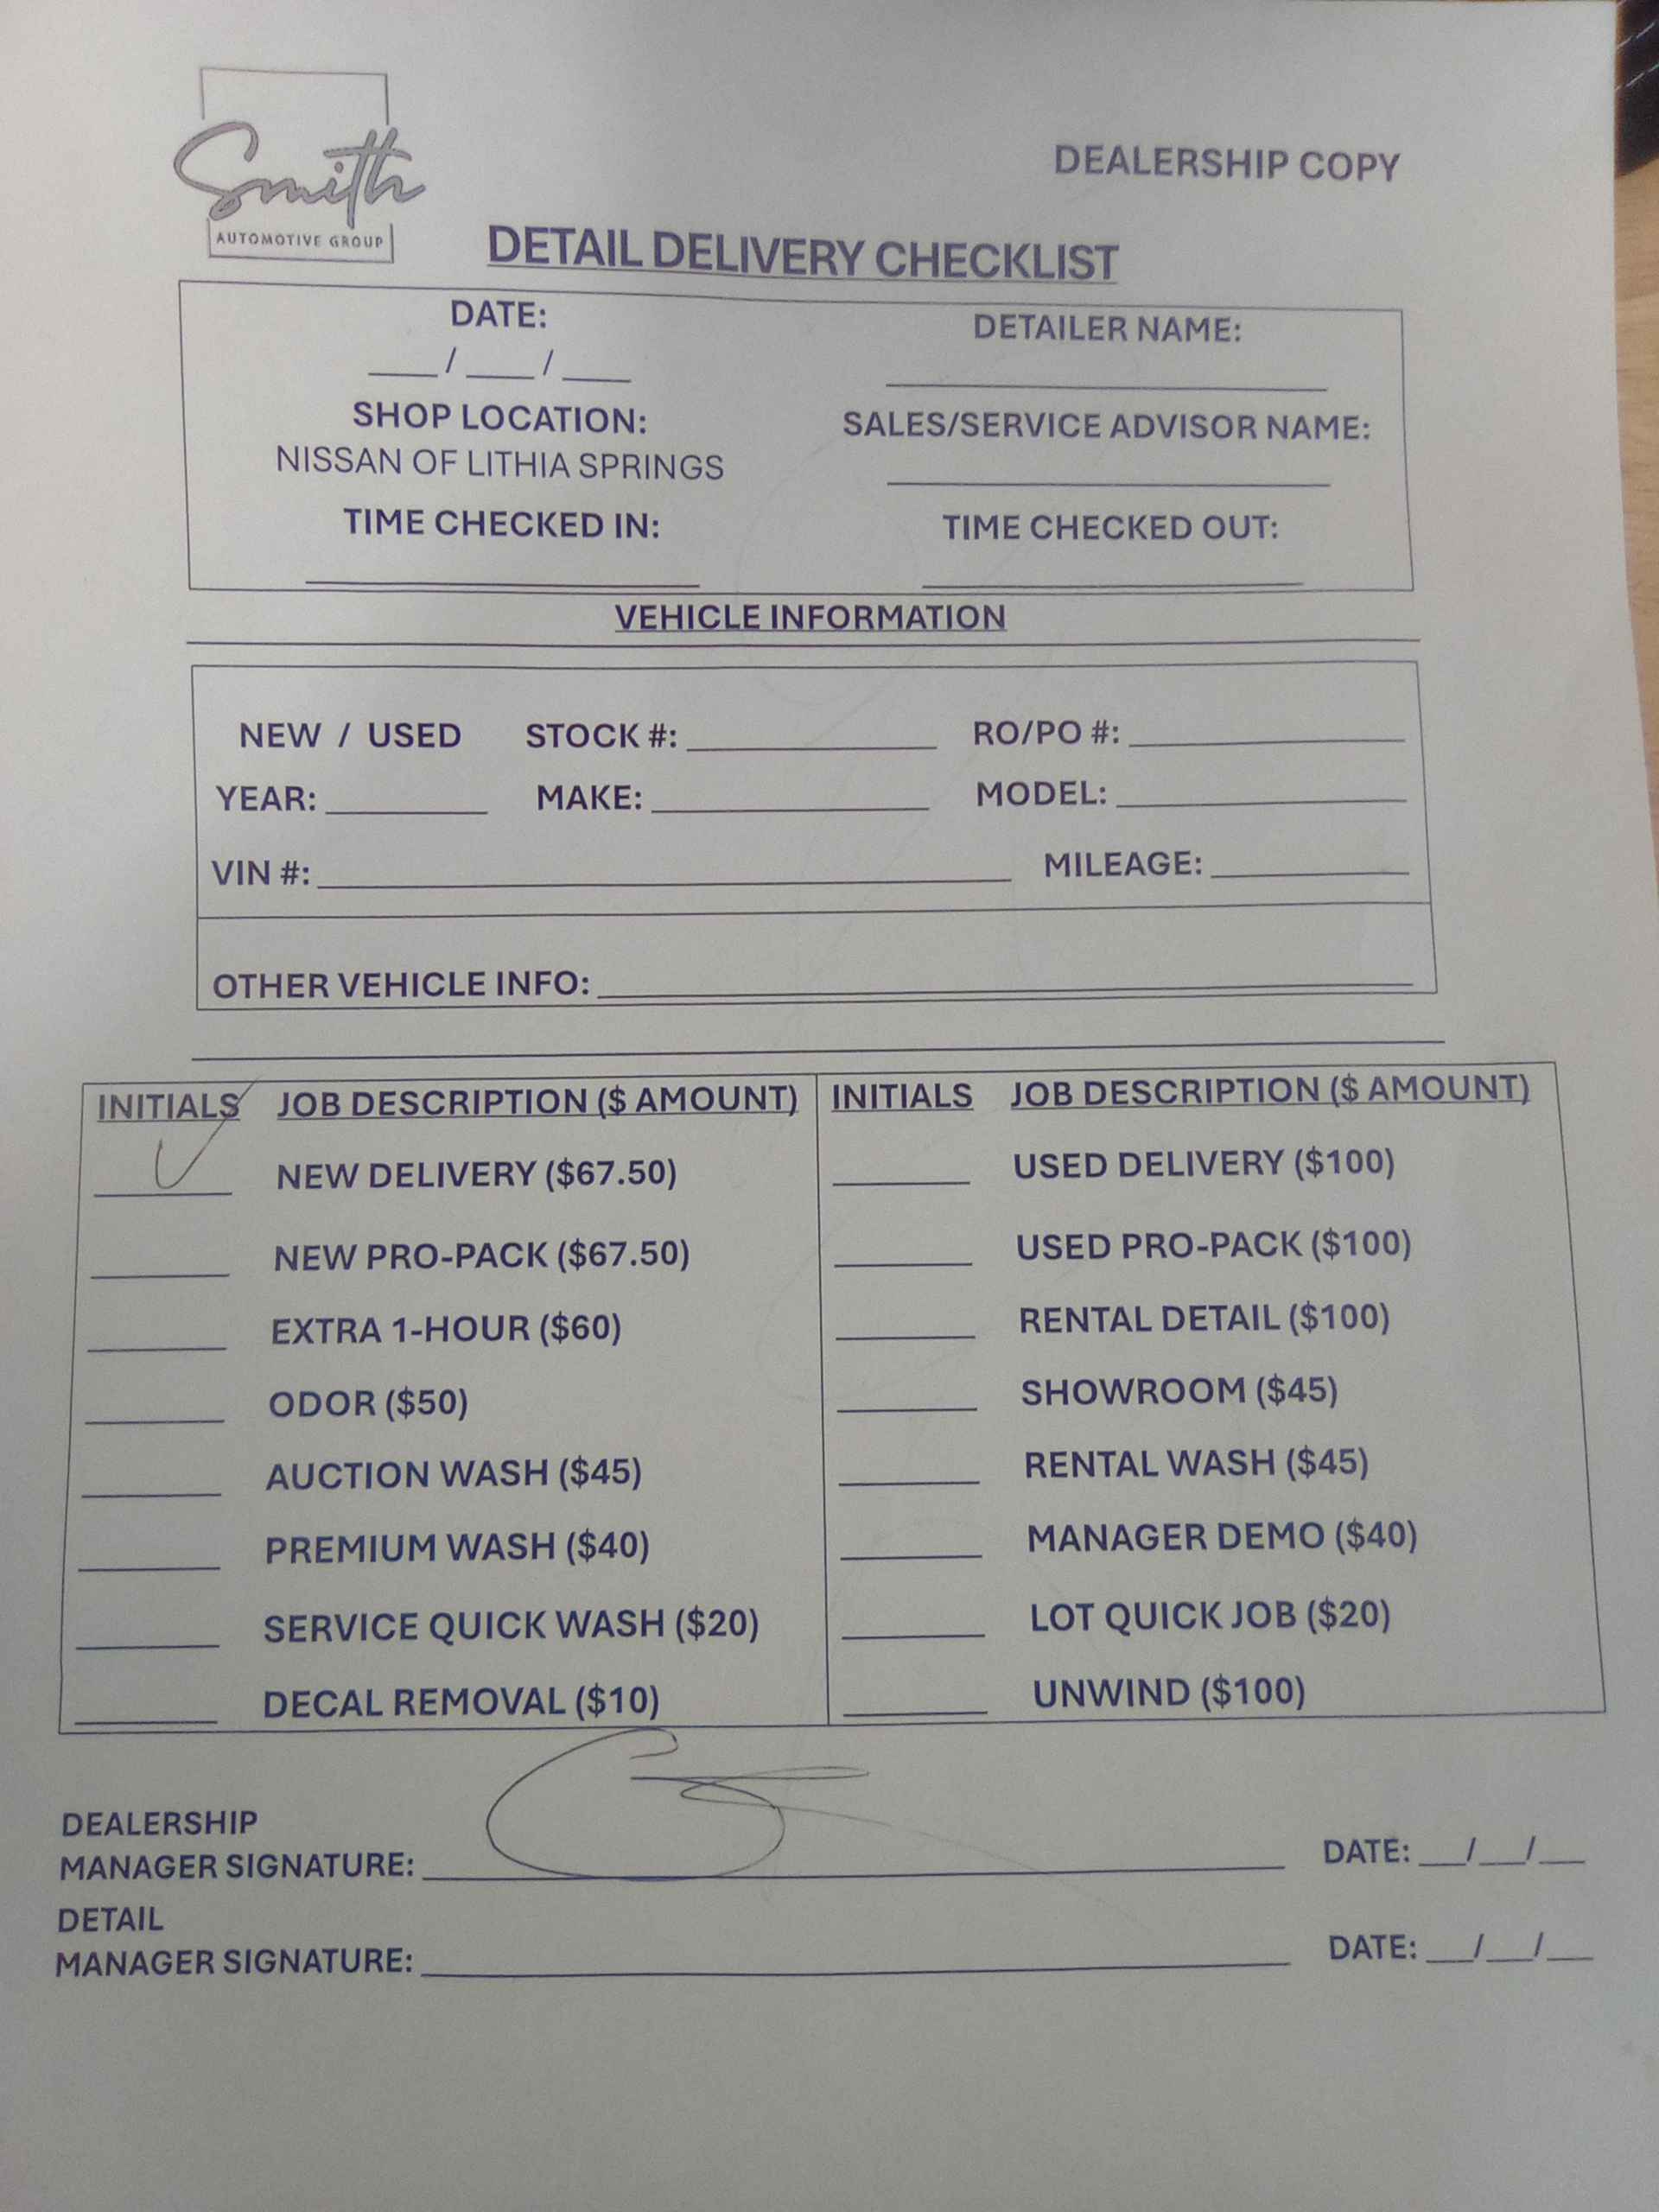 Smith
AUTOMOTIVE GROUP
DEALERSHIP COPY
DETAIL DELIVERY CHECKLIST
DATE: DETAILER NAME:
___/___/___
SHOP LOCATION: SALES/SERVICE ADVISOR NAME:
NISSAN OF LITHIA SPRINGS
TIME CHECKED IN: TIME CHECKED OUT:
VEHICLE INFORMATION
NEW / USED STOCK #: RO/PO #:
YEAR: MAKE: MODEL:
VIN #: MILEAGE:
OTHER VEHICLE INFO:
INITIALS JOB DESCRIPTION ($ AMOUNT) INITIALS JOB DESCRIPTION ($ AMOUNT)
✓ NEW DELIVERY ($67.50) USED DELIVERY ($100)
NEW PRO-PACK ($67.50) USED PRO-PACK ($100)
EXTRA 1-HOUR ($60) RENTAL DETAIL ($100)
ODOR ($50) SHOWROOM ($45)
AUCTION WASH ($45) RENTAL WASH ($45)
PREMIUM WASH ($40) MANAGER DEMO ($40)
SERVICE QUICK WASH ($20) LOT QUICK JOB ($20)
DECAL REMOVAL ($10) UNWIND ($100)
DEALERSHIP
MANAGER SIGNATURE: DATE: __/__/__
DETAIL
MANAGER SIGNATURE: DATE: __/__/__